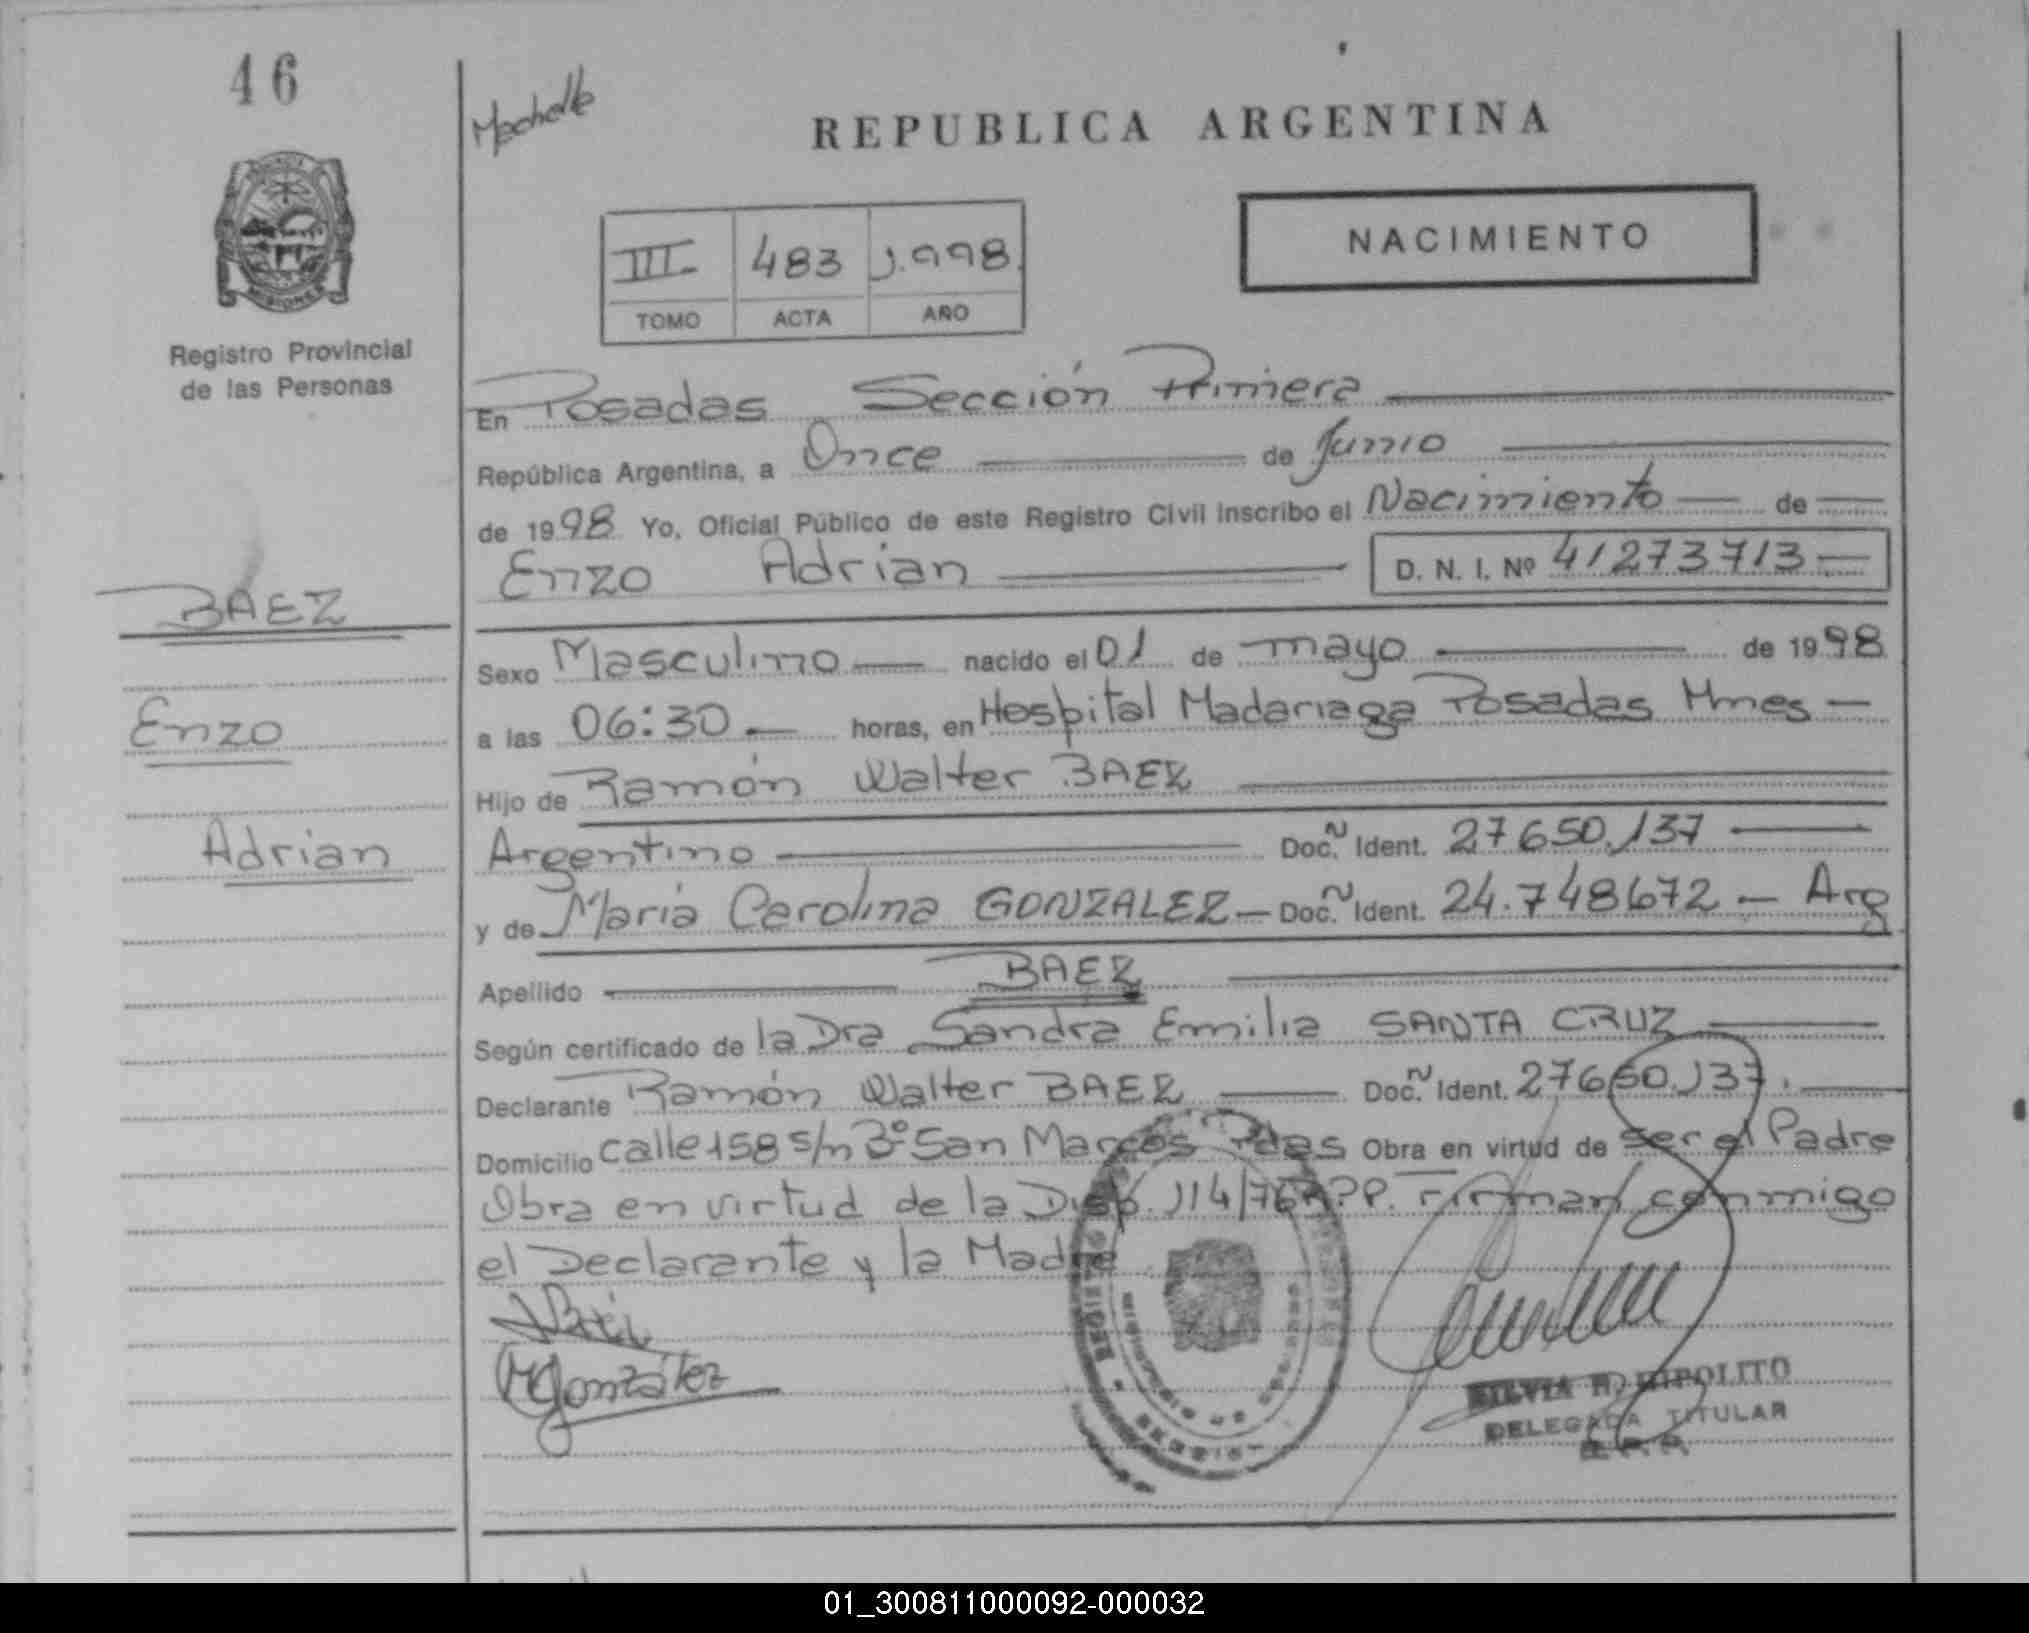 46
REPUBLICA ARGENTINA
NACIMIENTO
III 483 1.998.
TOMO ACTA AÑO
MISIONES
Registro Provincial
de las Personas
En Posadas Sección Primera
República Argentina, a Once de Junio
de 1998 Yo, Oficial Público de este Registro Civil inscribo el Nacimiento de
Enzo Adrian D. N. I. Nº 41273713
BAEZ
Sexo Masculino nacido el 01 de mayo de 1998
Enzo
a las 06:30 horas, en Hospital Madariaga Posadas Mnes
Hijo de Ramón Walter BAEZ
Adrian
Argentino Doc. Ident. 27650.137
y de Maria Carolina GONZALEZ Doc. Ident. 24.748672 Arg
Apellido BAEZ
Según certificado de la Dra Sandra Emilia SANTA CRUZ
Declarante Ramón Walter BAEZ Doc. Ident. 27650.137.
Domicilio calle 158 s/n Bº San Marcos Pdas Obra en virtud de ser el Padre
Obra en virtud de la Disp. 114/76 R.P.P. Firman conmigo
el Declarante y la Madre
MGonzález
SILVIA H. HIPOLITO
DELEGADA TITULAR
R. P. P.
01_300811000092-000032